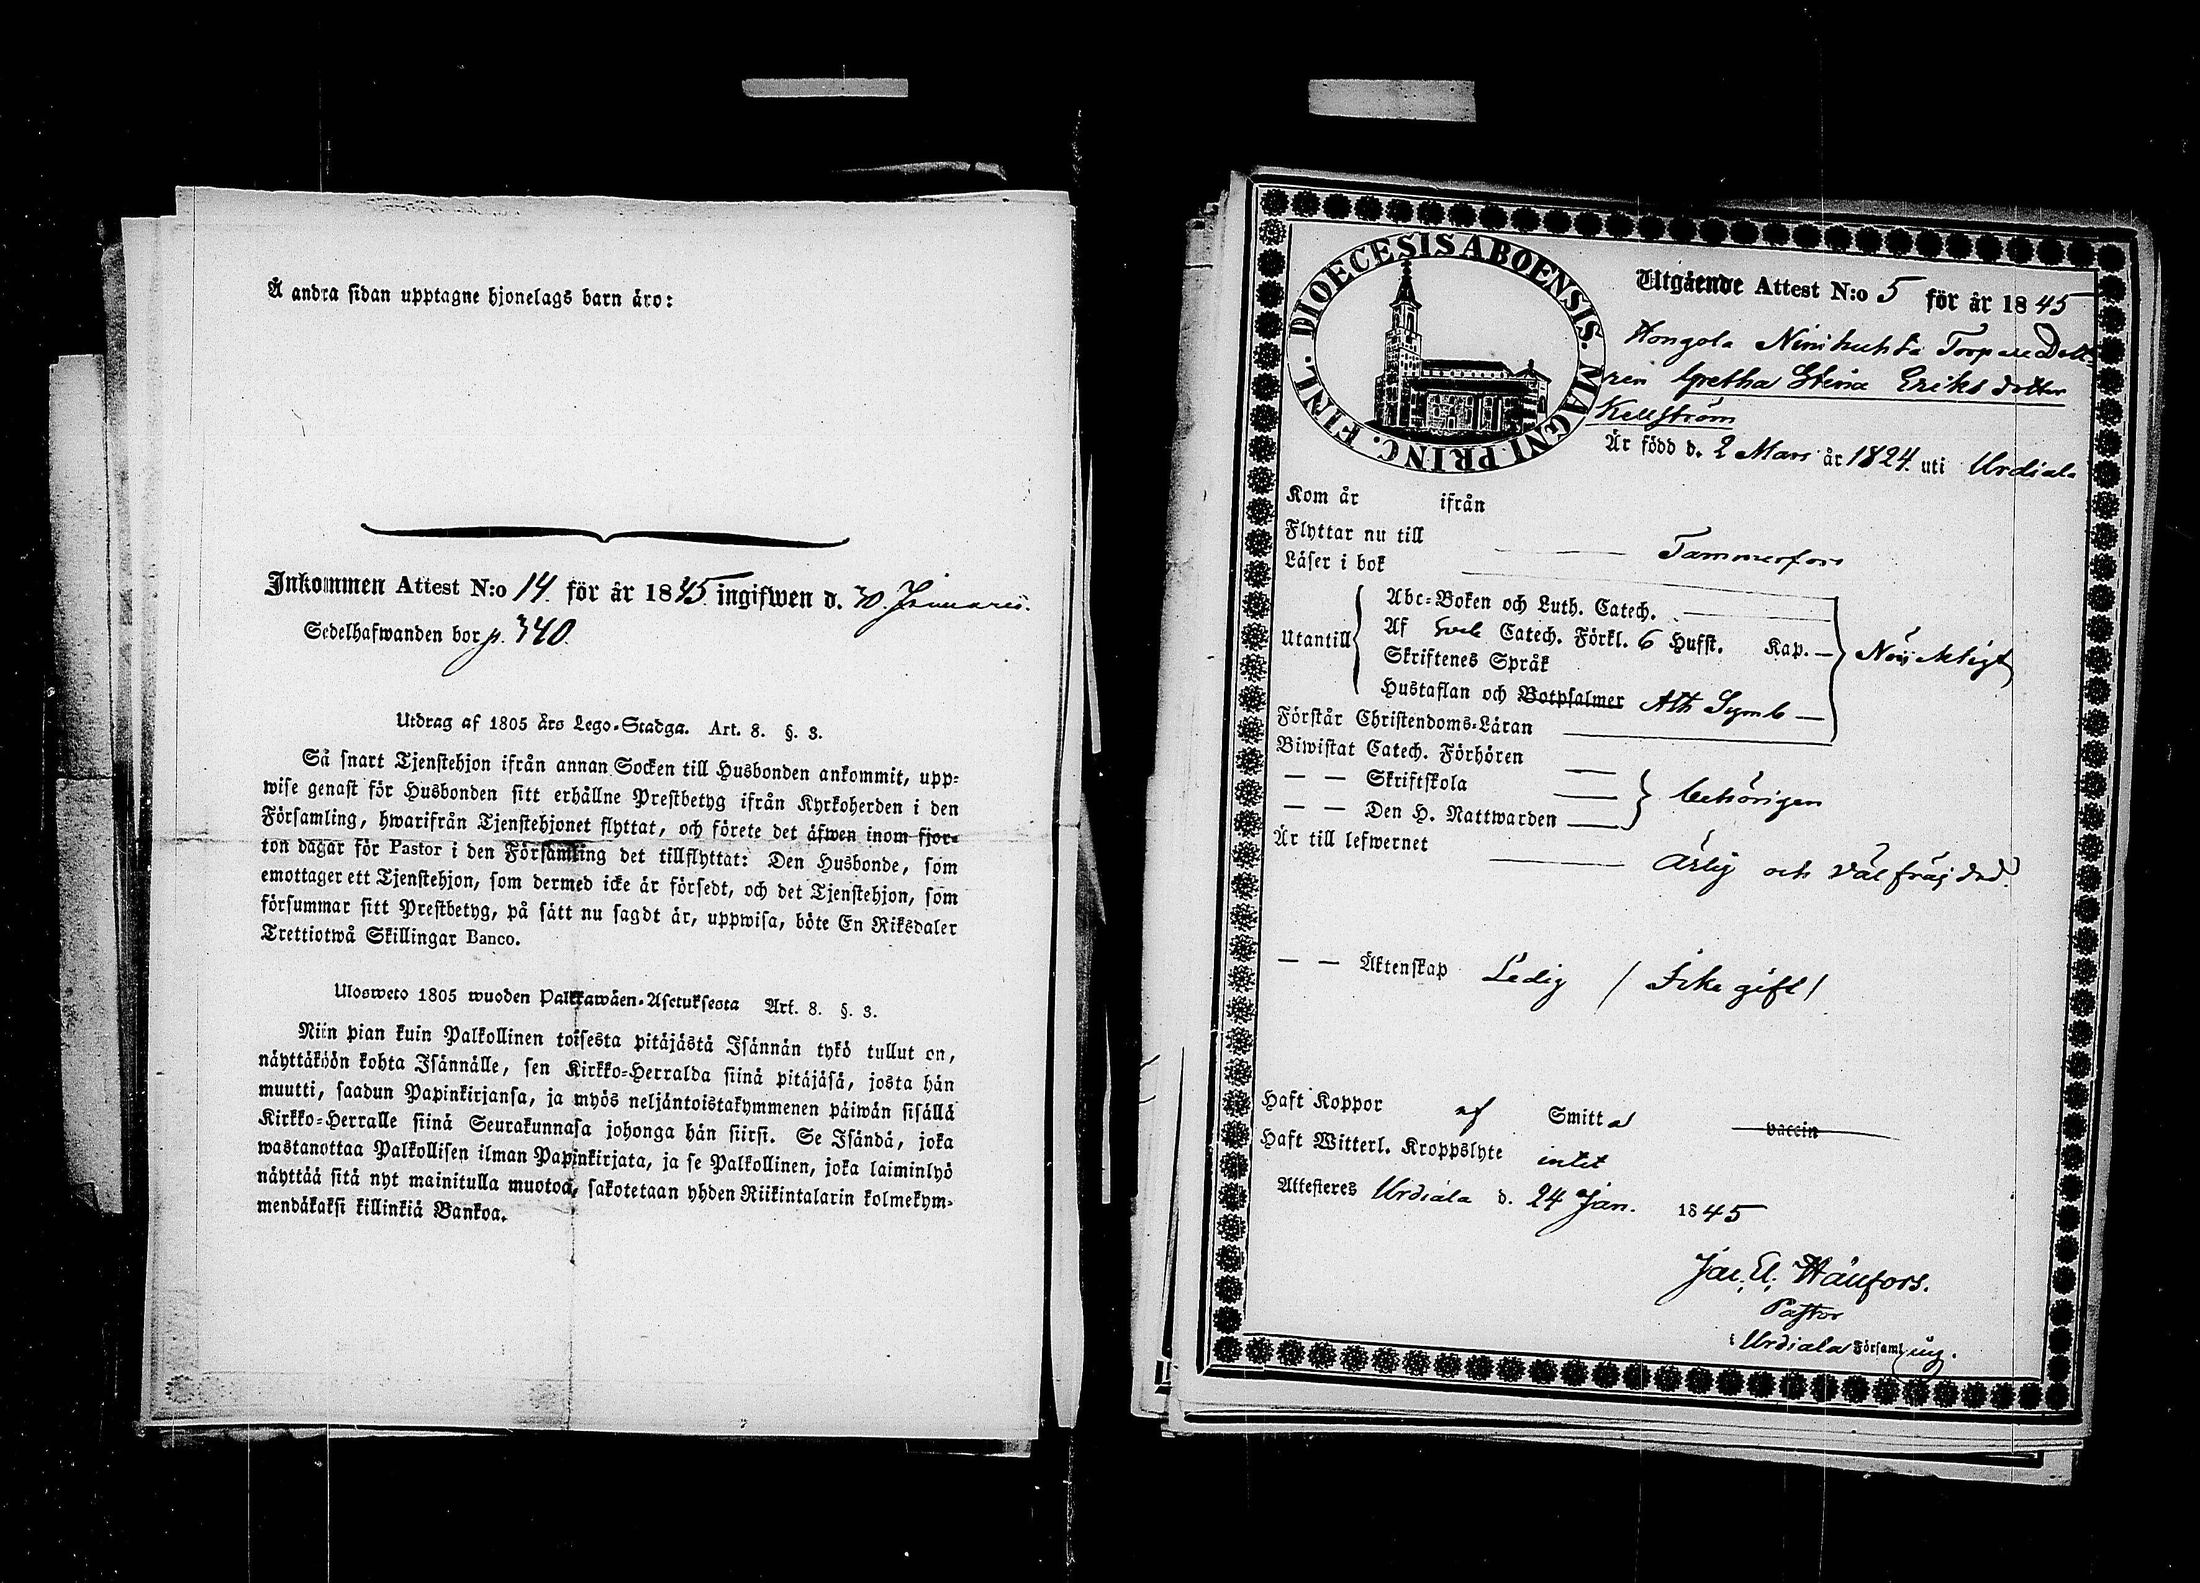 Å andra sidan upptagne hjonelags barn äro:
Inkommen Attest N:o 14. för år 1845. ingifwen d. 30. Januarii.
Sedelhafwanden bor p. 340.
Utdrag af 1805 års Lego-Stadga. Art. 8. §. 3.
Så snart Tjenstehjon ifrån annan Socken till Husbonden ankommit, upp-
wise genast för Husbonden sitt erhållne Prestbetyg ifrån Kyrkoherden i den
Församling, hwarifrån Tjenstehjonet flyttat, och förete det äfwen inom fjor-
ton dagar för Pastor i den Församling det tillflyttat: Den Husbonde, som
emottager ett Tjenstehjon, som dermed icke är försedt, och det Tjenstehjon, som
försummar sitt Prestbetyg, på sätt nu sagdt är, uppwisa, böte En Riksdaler
Trettiotwå Skillingar Banco.
Ulosweto 1805 wuoden Palkkawäen-Asetuksesta Art. 8. §. 3.
Niin pian kuin Palkollinen toisesta pitäjästä Isännän tykö tullut on,
näyttäköön kohta Isännälle, sen Kirkko-Herralda siinä pitäjäsä, josta hän
muutti, saadun Papinkirjansa, ja myös neljäntoistakymmenen päiwän sisällä
Kirkko-Herralle siinä Seurakunnasa johonga hän siirsi. Se Isändä, joka
wastanottaa Palkollisen ilman Papinkirjata, ja se Palkollinen, joka laiminlyö
näyttää sitä nyt mainitulla muotoa, sakotetaan yhden Riikintalarin kolmekym-
mendäkaksi killinkiä Bankoa.
DIOECESIS ABOENSIS. MAGNI. PRINC. FINL.
Utgående Attest N:o 5 för år 1845
Hongola Ninihuhta Torpare Dott-
ren Gretha Stina Eriks dotter
Kellström
Är född d. 2 Mars år 1824. uti Urdiala
Kom år ifrån
Flyttar nu till Tammerfors
Läser i bok
Utantill
Abc-Boken och Luth. Catech.
Af Sveb Catech. Förkl. 6 Hufst. Kap. Nöjaktigt
Skriftenes Språk
Hustaflan och Botpsalmer Ath Symb
Förstår Christendoms-Läran
Biwistat Catech. Förhören
— — Skriftskola behörigen
— — Den H. Nattwarden
Är till lefwernet ärlig och välfräjdad.
— — Äktenskap Ledig / Icke gift /
Haft Koppor af Smitta vaccin
Haft Witterl. Kroppslyte intet
Attesteres Urdiala d. 24 Jan. 1845
Jac. El. Hänfors.
Pastor
i Urdiala Församling.